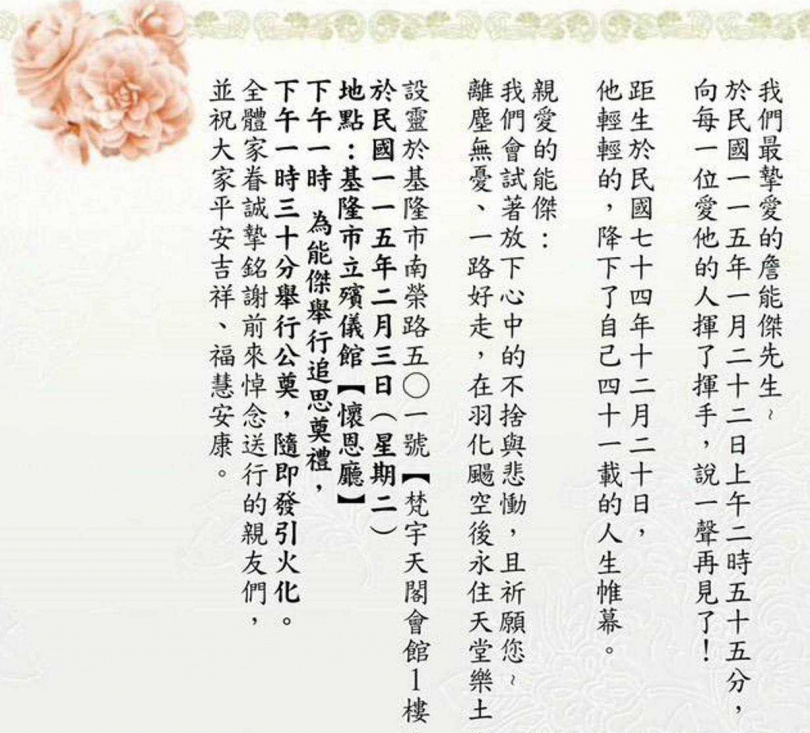 我們最摯愛的詹能傑先生~
於民國一一五年一月二十二日上午二時五十五分，
向每一位愛他的人揮了揮手，說一聲再見了！
距生於民國七十四年十二月二十日，
他輕輕的，降下了自己四十一載的人生帷幕。
親愛的能傑：
我們會試著放下心中的不捨與悲慟，且祈願您~
離塵無憂、一路好走，在羽化颺空後永住天堂樂土
設靈於基隆市南榮路五〇一號【梵宇天閣會館1樓
於民國一一五年二月三日（星期二）
地點：基隆市立殯儀館【懷恩廳】
下午一時 為能傑舉行追思奠禮，
下午一時三十分舉行公奠，隨即發引火化。
全體家眷誠摯銘謝前來悼念送行的親友們，
並祝大家平安吉祥、福慧安康。